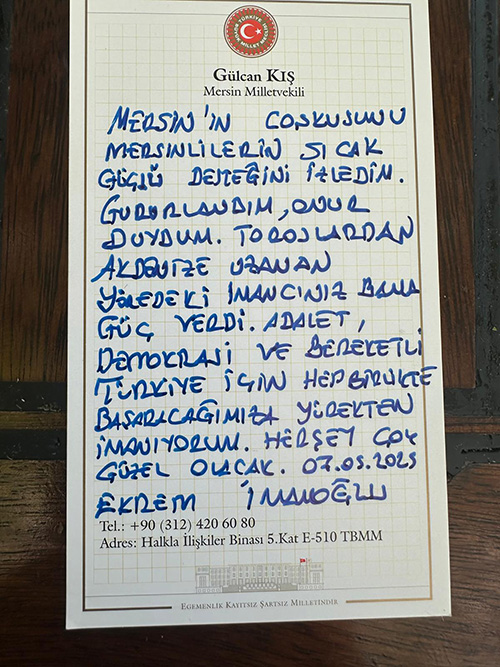 TÜRKİYE BÜYÜK MİLLET MECLİSİ
Gülcan KIŞ
Mersin Milletvekili
MERSİN'İN COŞKUSUNU
MERSİNLİLERİN SICAK
GÜÇLÜ DESTEĞİNİ İZLEDİM.
GURURLANDIM, ONUR
DUYDUM. TOROSLARDAN
AKDENİZE UZANAN
YÖREDEKİ İNANCINIZ BANA
GÜÇ VERDİ. ADALET,
DEMOKRASİ VE BEREKETLİ
TÜRKİYE İÇİN HEP BİRLİKTE
BAŞARACAĞIMIZA YÜREKTEN
İNANIYORUM. HERŞEY ÇOK
GÜZEL OLACAK. 07.05.2025
EKREM İMAMOĞLU
Tel.: +90 (312) 420 60 80
Adres: Halkla İlişkiler Binası 5.Kat E-510 TBMM
EGEMENLİK KAYITSIZ ŞARTSIZ MİLLETİNDİR